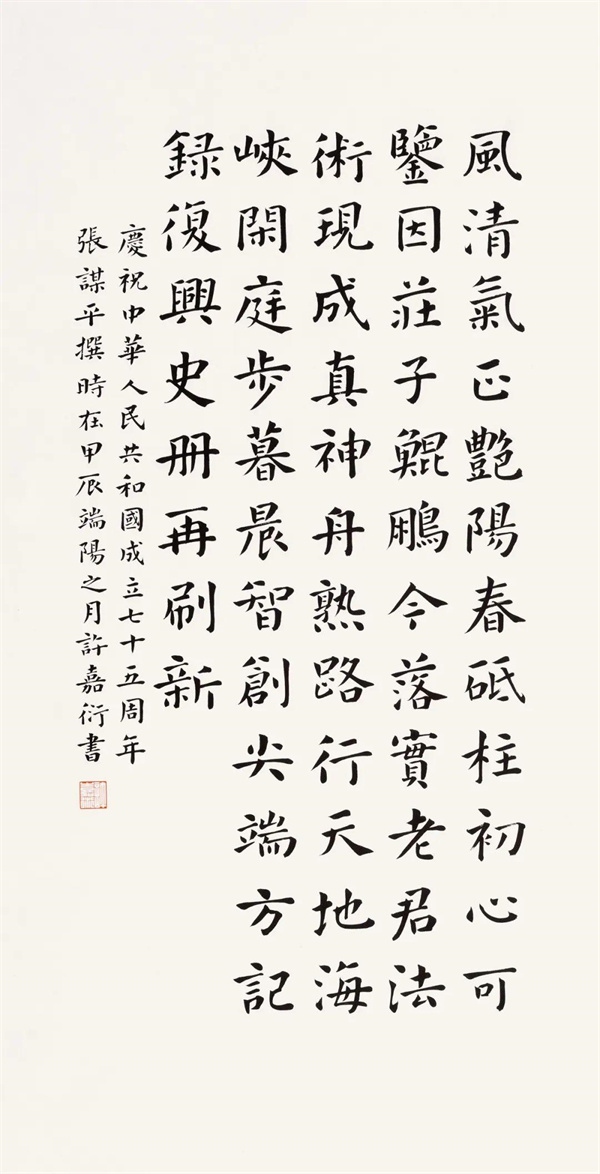 風清氣正艷陽春砥柱初心可
鑒因莊子鯤鵬今落實老君法
術現成真神舟熟路行天地海
峽閑庭步暮晨智創尖端方記
録復興史册再刷新
慶祝中華人民共和國成立七十五周年
張謀平撰時在甲辰端陽之月許嘉衍書